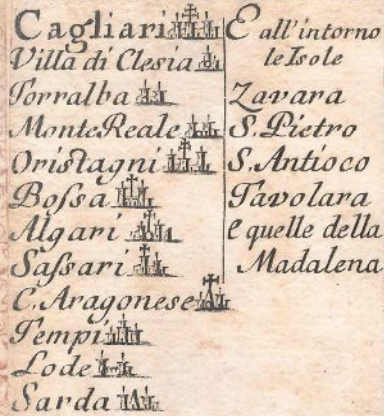 Cagliari
Villa di Clesia
Torralba
Monte Reale
Oristagni
Boſsa
Algari
Saſsari
C. Aragonese
Tempi
Lode
Sarda
E all'intorno
le Isole
Zavara
S. Pietro
S. Antioco
Tavolara
e quelle della
Madalena